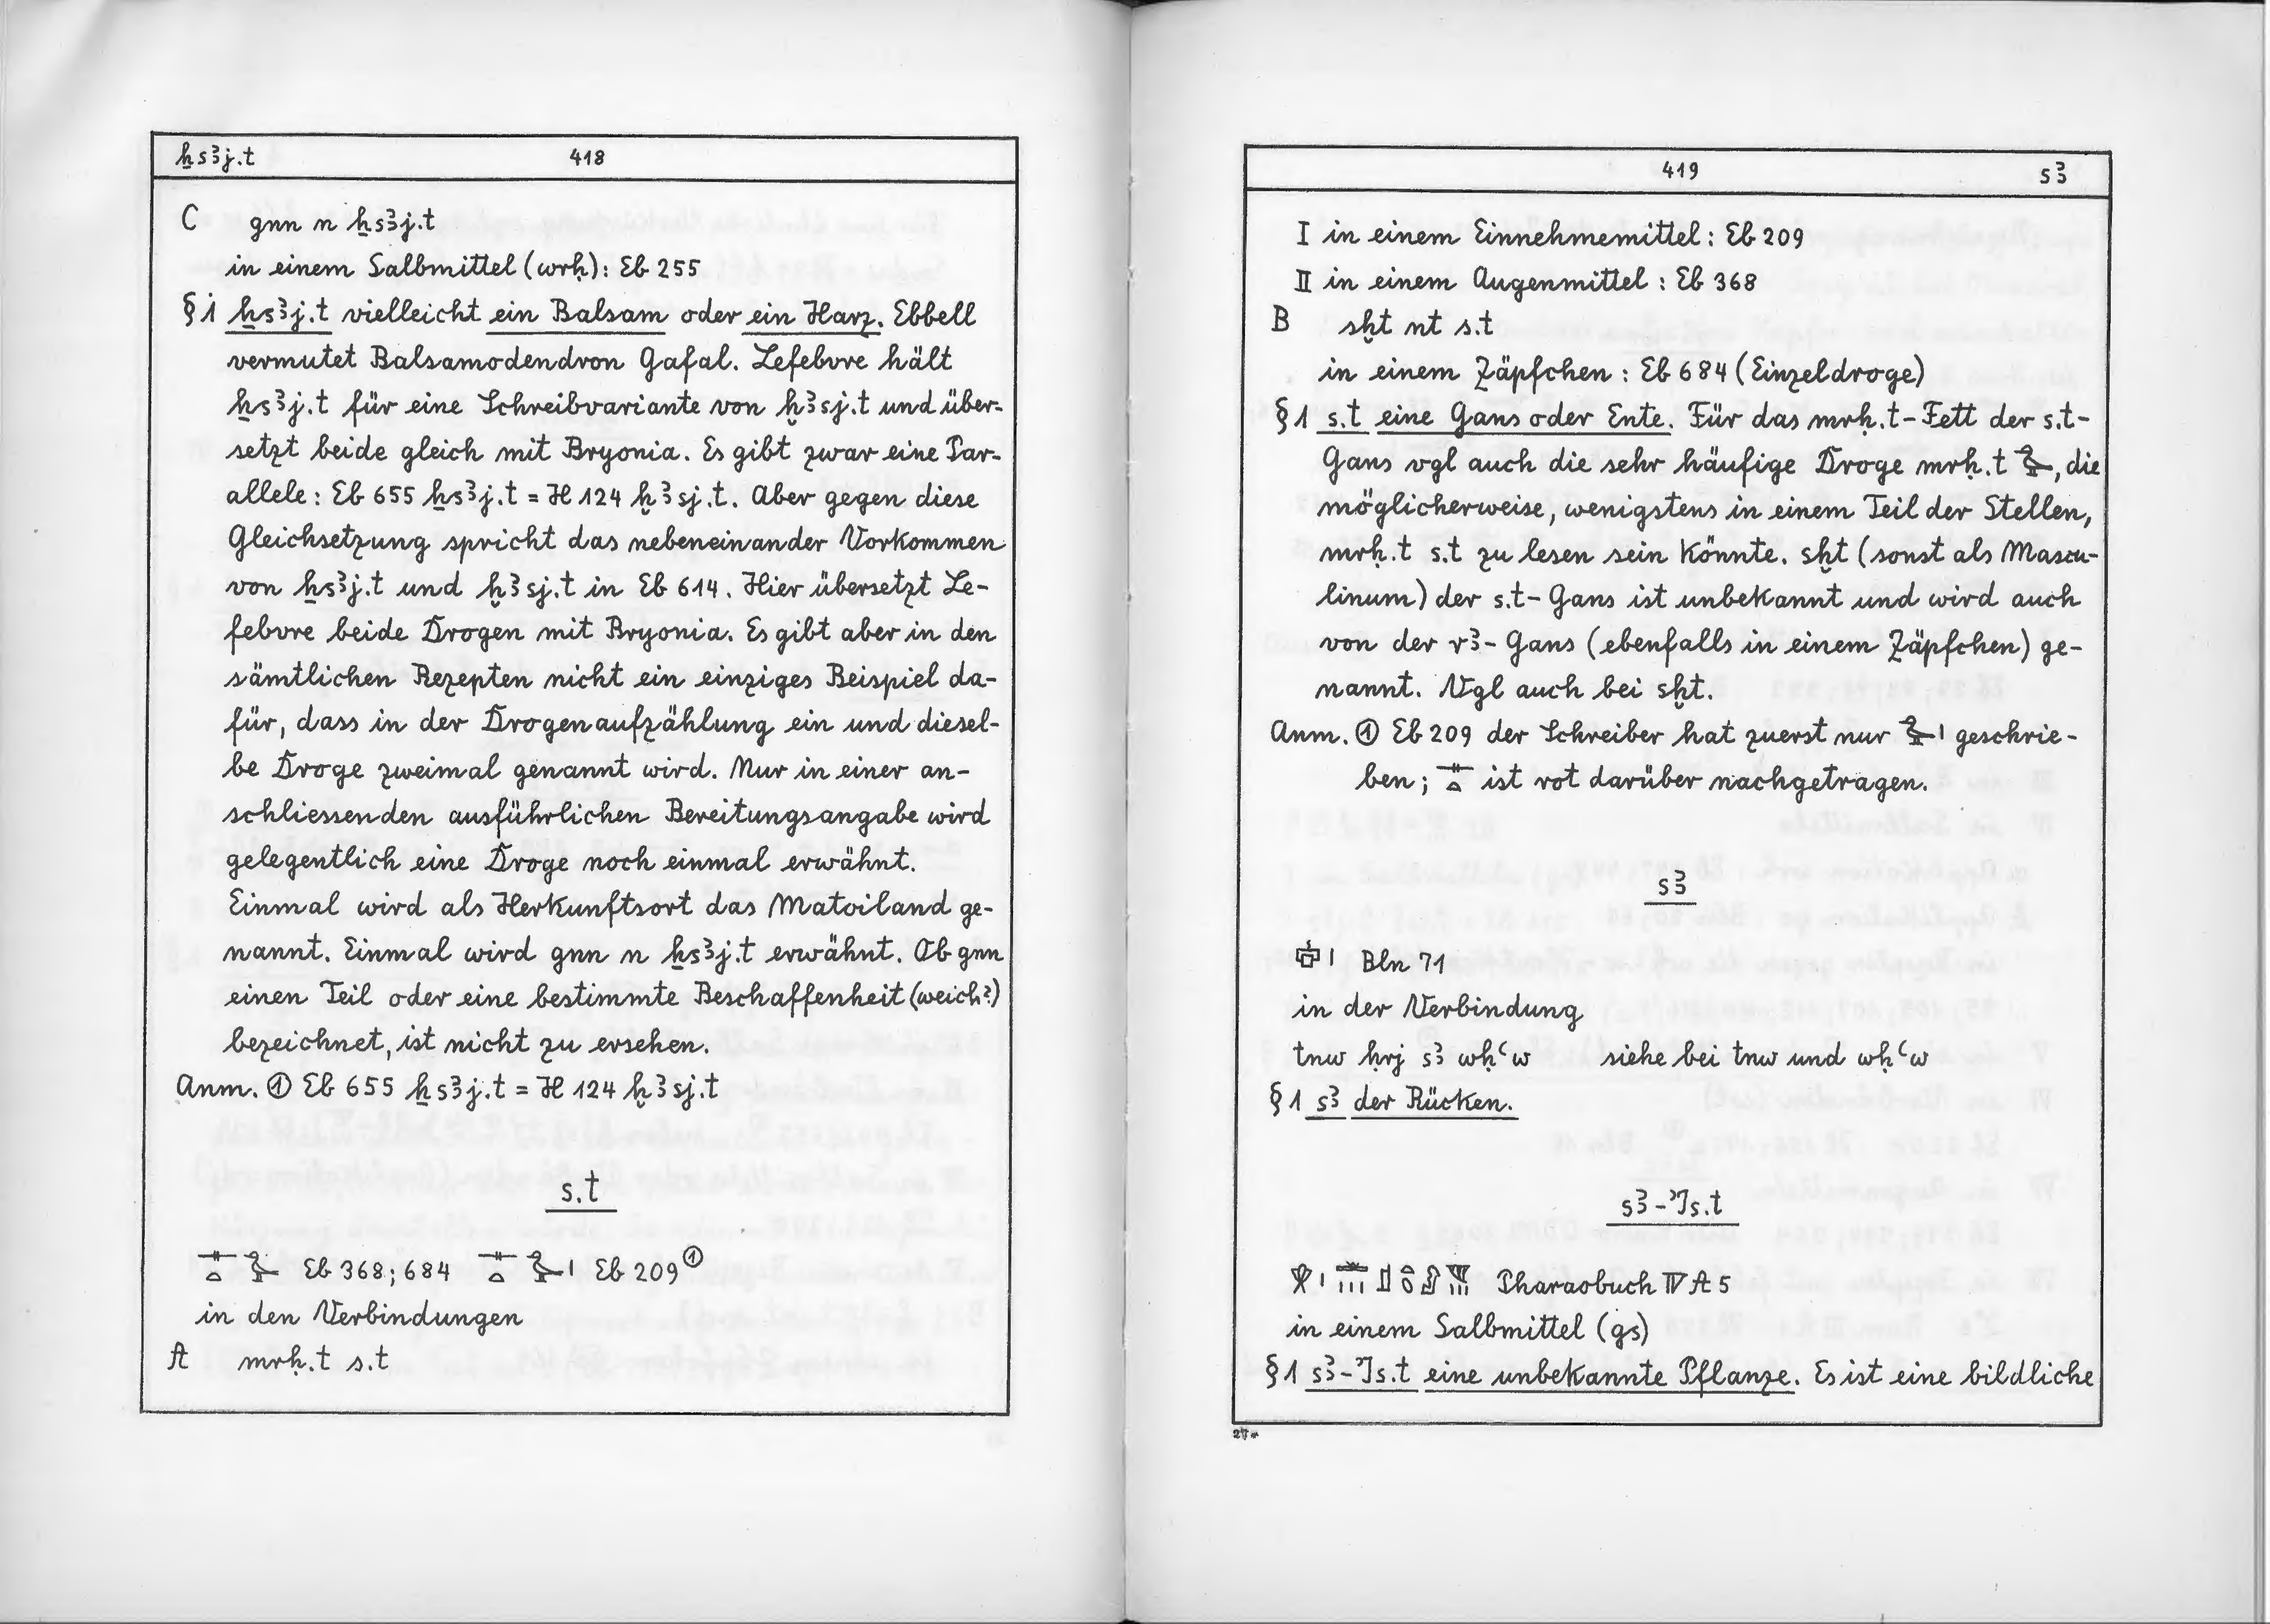 ẖsꜣj.t 418
C gnn n ẖsꜣj.t
in einem Salbmittel (wrḥ): Eb 255
§ 1 ẖsꜣj.t vielleicht ein Balsam oder ein Harz. Ebbell
vermutet Balsamodendron Gafal. Lefebvre hält
ẖsꜣj.t für eine Schreibvariante von ḫꜣsj.t und über-
setzt beide gleich mit Bryonia. Es gibt zwar eine Par-
allele: Eb 655 ẖsꜣj.t = H 124 ḫꜣsj.t. Aber gegen diese
Gleichsetzung spricht das nebeneinander Vorkommen
von ẖsꜣj.t und ḫꜣsj.t in Eb 614. Hier übersetzt Le-
febvre beide Drogen mit Bryonia. Es gibt aber in den
sämtlichen Rezepten nicht ein einziges Beispiel da-
für, dass in der Drogenaufzählung ein und diesel-
be Droge zweimal genannt wird. Nur in einer an-
schliessenden ausführlichen Bereitungsangabe wird
gelegentlich eine Droge noch einmal erwähnt.
Einmal wird als Herkunftsort das Matoiland ge-
nannt. Einmal wird gnn n ẖsꜣj.t erwähnt. Ob gnn
einen Teil oder eine bestimmte Beschaffenheit (weich?)
bezeichnet, ist nicht zu ersehen.
Anm. ① Eb 655 ẖsꜣj.t = H 124 ḫꜣsj.t
s.t
Eb 368; 684 Eb 209 ①
in den Verbindungen
A mrḥ.t s.t
419 sꜣ
I in einem Einnehmemittel: Eb 209
II in einem Augenmittel: Eb 368
B sḫt nt s.t
in einem Zäpfchen: Eb 684 (Einzeldroge)
§ 1 s.t eine Gans oder Ente. Für das mrḥ.t-Fett der s.t-
Gans vgl auch die sehr häufige Droge mrḥ.t , die
möglicherweise, wenigstens in einem Teil der Stellen,
mrḥ.t s.t zu lesen sein könnte. sḫt (sonst als Mascu-
linum) der s.t-Gans ist unbekannt und wird auch
von der rꜣ-Gans (ebenfalls in einem Zäpfchen) ge-
nannt. Vgl auch bei sḫt.
Anm. ① Eb 209 der Schreiber hat zuerst nur geschrie-
ben; ist rot darüber nachgetragen.
sꜣ
Bln 71
in der Verbindung
tnw ḥrj sꜣ wḥꜥw siehe bei tnw und wḥꜥw
§ 1 sꜣ der Rücken.
sꜣ-Js.t
Pharaobuch IV A 5
in einem Salbmittel (gs)
§ 1 sꜣ-Js.t eine unbekannte Pflanze. Es ist eine bildliche
27*